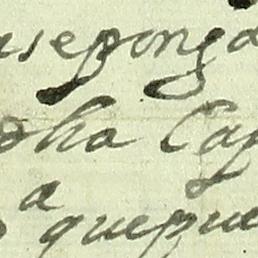 seponga
dha Cap
a
quepue